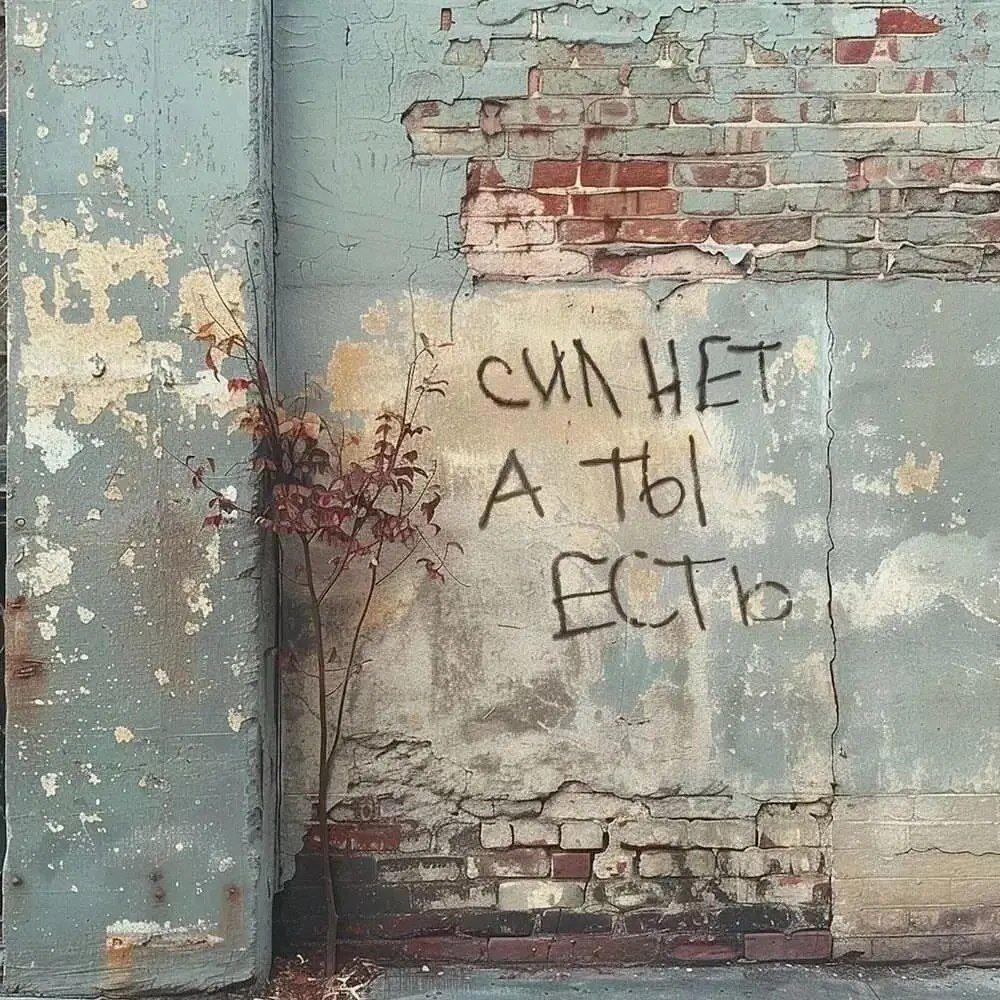 СИЛ НЕТ
А ТЫ
ЕСТЬ